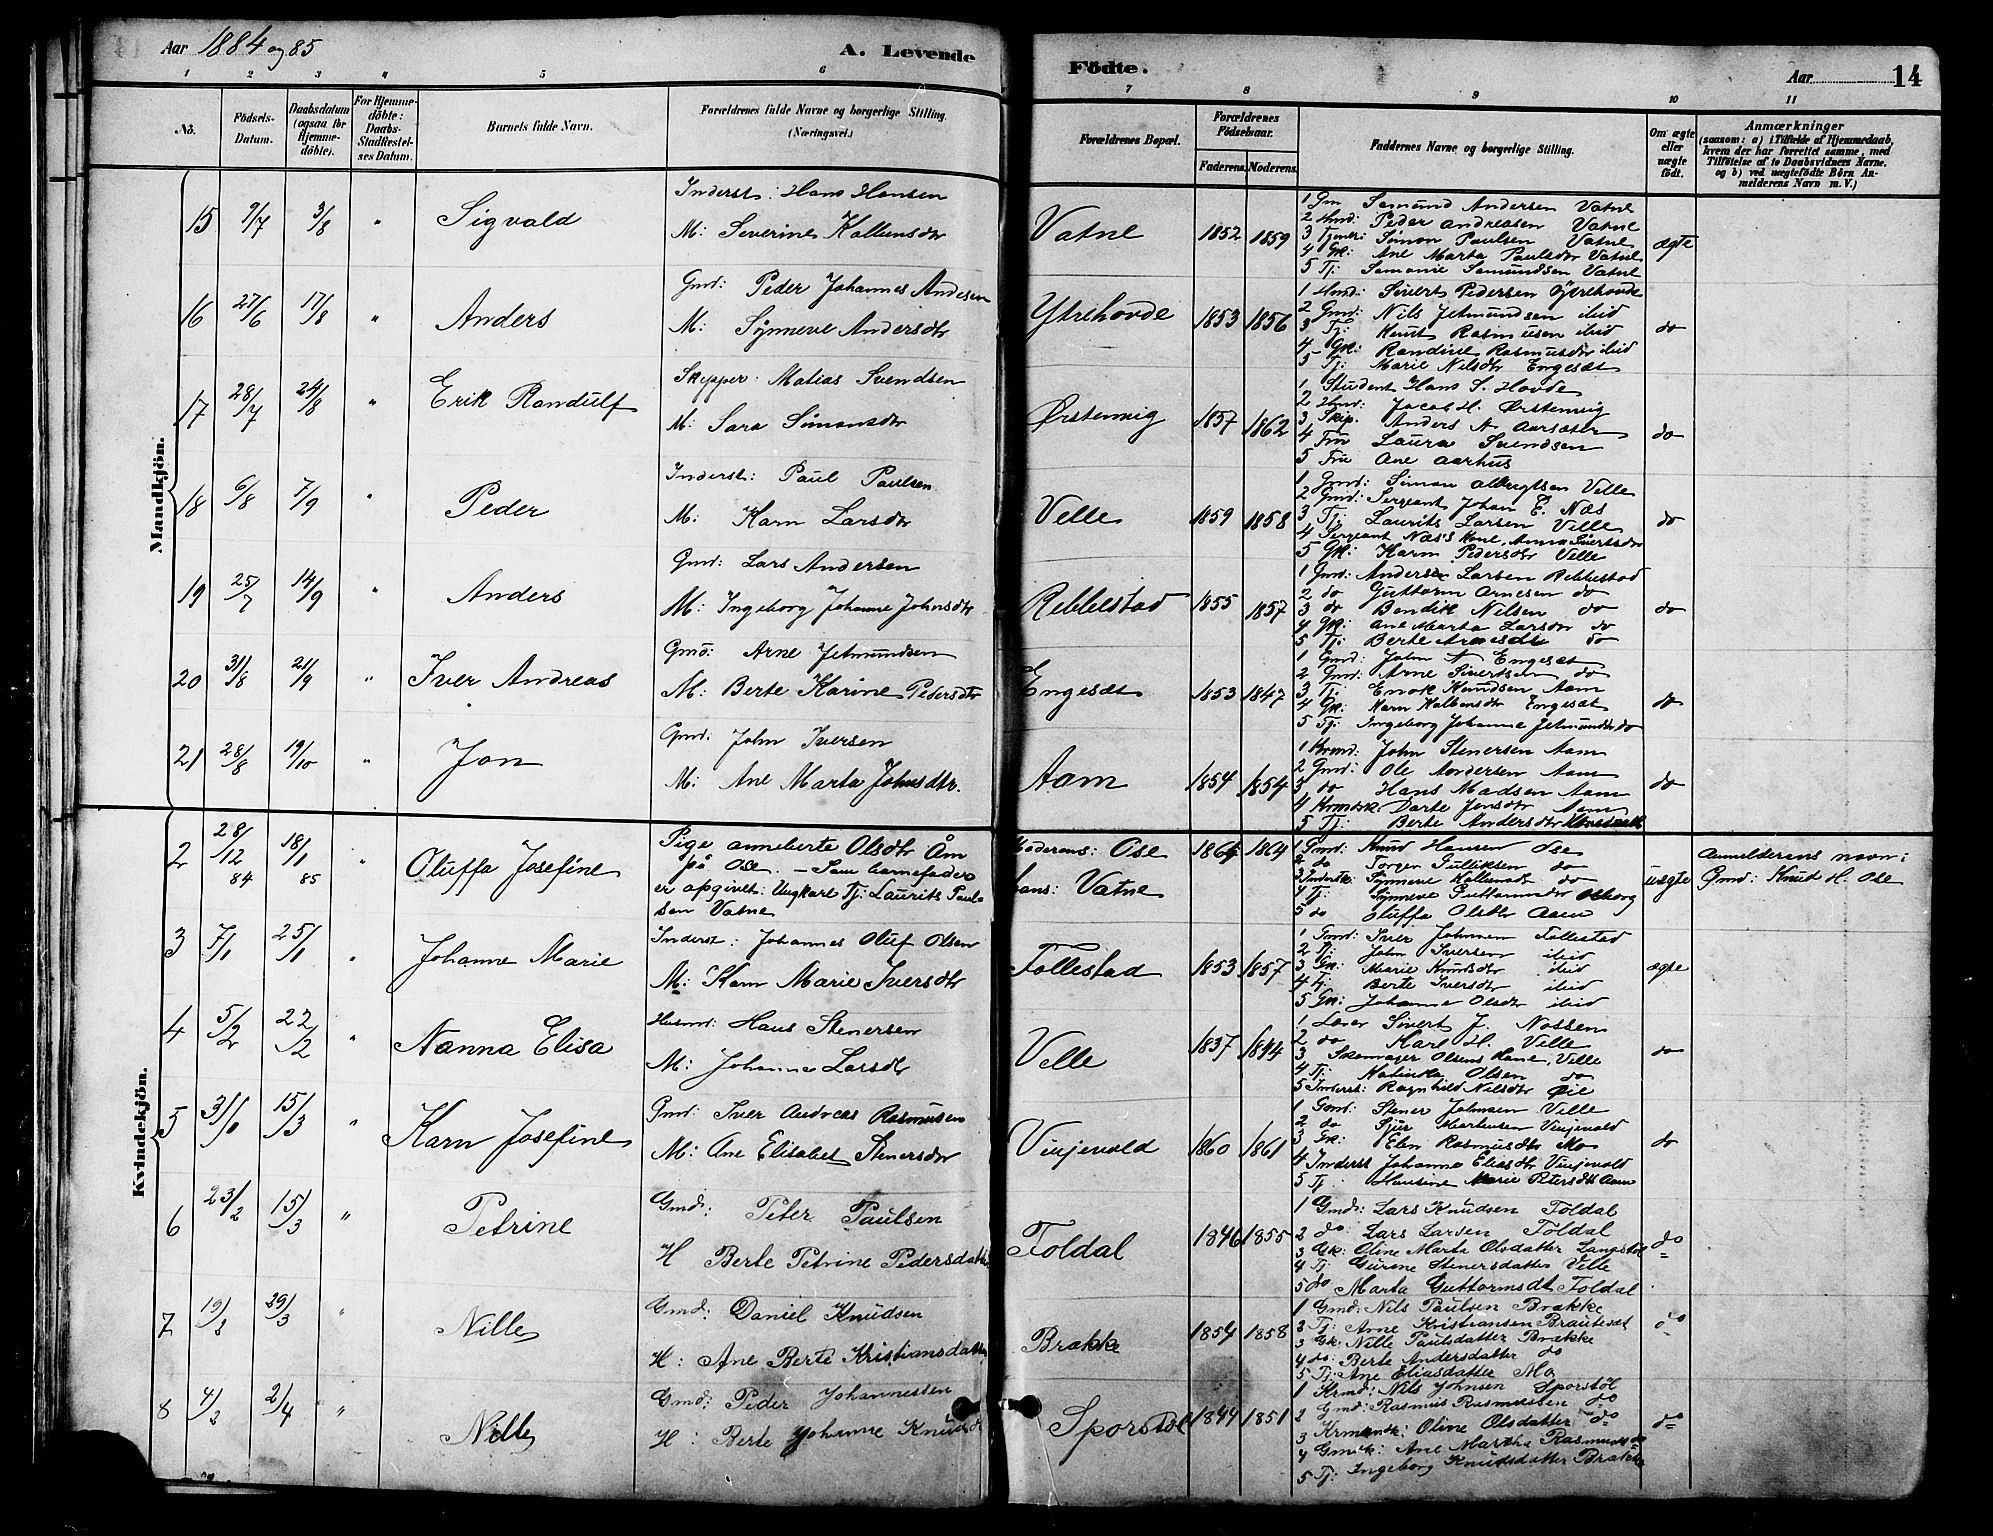 Aar 1884 og 85
A. Levende
Födte.
Aar
14
1 2 3 4 5 6 7 8 9 10 11
No.
Födsels-Datum.
Daabsdatum (ogsaa for Hjemme-döbte).
For Hjemme-döbte: Daabs-Stadfæstel-ses Datum.
Barnets fulde Navn.
Forældrenes fulde Navne og borgerlige Stilling. (Næringsvei.)
Forældrenes Bopæl.
Forældrenes Födselsaar.
Faderens. Moderens.
Faddernes Navne og borgerlige Stilling.
Om ægte eller uægte födt.
Anmærkninger
(saasom: a) i Tilfælde af Hjemmedaab,
hvem der har forrettet samme, med
Tilföielse af to Daabsvidners Navne.
og b) ved uægtefödte Börn An-
melderens Navn m. V.)
Mandkjön.
15 9/7 3/8 " Sigvald
Inderst: Hans Hansen
M: Severine Kolbensdtr
Vatne 1852 1859
1 Gm Samund Andersen Vatne
2 Hmd: Peder Andreasen Vatne
3 Tjener: Simon Paulsen Vatne
4 Gk: Ane Marta Paulsdtr Vatne
5 Tj: Samundsen Vatne
ægte
16 27/6 17/8 " Anders
Gmd: Peder Johannes Andersen
M: Synneve Andersdtr
Ytrehovde 1853 1856
1 Hmd: Sivert Pedersen Ytrehovde
2 Gmd: Nils Jetmundsen ibid
3 Tj: Knut Rasmusen ibid
4 Gk: Randine Rasmusdtr ibid
5 Tj: Marie Nilsdtr Engesæt
do
17 28/7 24/8 " Erik Randulf
Skipper: Matias Svendsen
M: Sara Simonsdtr
Ørstenvig 1857 1862
1 Student Hans S. Hovde
2 Hmd: Jacob H. Ørstenvig
3 Skip. Anders A. Aarsæter
4 Fru Laura Svendsen
5 Fru Ane Aarhus
do
18 6/8 7/9 " Peder
Inderst: Paul Paulsen
M: Karn Larsdtr
Velle 1859 1858
1 Gmd: Simon Velle
2 Gmd: Sergeant Johan E. Næs
3 Tj: Laurits Larsen Velle
4 Sergeant Næs's Kone, Anna Sivertsdtr
5 Gk: Karn Pedersdtr Velle
do
19 25/7 14/9 " Anders
Gmd: Lars Andersen
M: Ingeborg Johanne Johnsdtr
Rebbestad 1855 1857
1 Gmd: Anders Larsen Rebbestad
2 do Guttorm Arnesen do
3 do Bendik Nilsen do
4 Gk: Ane Marta Larsdtr do
5 Tj: Berte Arnesdtr do
do
20 31/8 21/9 " Iver Andreas
Gmd: Arne Jetmundsen
M: Berte Karine Pedersdtr
Engesæt 1853 1847
1 Gmd: John A Engesæt
2 Gmd: Arne Sivertsen do
3 Tj: Enok Knudsen Aam
4 Gk: Karn Kolbensdtr Engesæt
5 Tj: Ingeborg Johanne Jetmundsdtr do
do
21 28/8 19/10 " Jon
Gmd: John Iversen
M: Ane Marta Johnsdtr.
Aam 1854 1854
1 Krmd: John Stenersen Aam
2 Gmd: Ole Andersen Aam
3 do Hans Madsen Aam
4 Krmdsk: Dorte Jensdtr Aam
5 Tj: Berte Andersdtr
do
Kvindekjön.
2 28/12 84 18/1 85 " Oluffa Josefine
Pige Anneberte Olsdtr Åm
på Ose. – Som barnefader
er opgivet: Ungkarl Tj: Laurits Paul-
sen Vatne
Moderens: Ose
hans: Vatne
1864 1864
1 Gmd: Knud Hansen Ose
2 do Torger Gulliksen do
3 Inderstk: Synneve do
4 Tj: Synneve Guttormsdtr
5 do Oluffa Olsdtr Aam
uægte
Anmelderens navn:
Gmd: Knud H. Ose
3 7/1 25/1 " Johanne Marie
Inderst: Johannes Oluf Olsen
M: Karn Marie Iversdtr
Follestad 1853 1857
1 Gmd: Iver Johnsen Follestad
2 Tj: John Iversen ibid
3 Gk: Marie Knudsdtr ibid
4 Tj: Berte Iversdtr ibid
5 Gk: Johanne Olsdtr ibid
ægte
4 5/2 22/2 " Nanna Elisa
Husmd: Hans Stenersen
M: Johanne Larsdtr
Velle 1837 1844
1 Lærer Sivert J. Nossen
2 do Karl H. Velle
3 Skomager Olsens Kone, Velle
4 Tj: Olsen do
5 Inderst: Ragnhild Nilsdtr Øie
do
5 31/0 15/3 " Karn Josefine
Gmd: Iver Andreas Rasmusen
M: Ane Elisabet Stenersdtr
Vinjevold 1860 1861
1 Gmd: Stener Johnsen Velle
2 do Sjur Vinjevold
3 Gk: Elen Rasmusdtr Mo
4 Inderst Johanne Eliasdtr Vinjevold
5 Tj Marie Petersdtr Aam
do
6 23/2 15/3 " Petrine
Gmd: Peter Paulsen
H Berte Petrine Pedersdatter
Foldal 1846 1855
1 Gmd: Lars Knudsen Foldal
2 do Lars Larsen Foldal
3 Gk: Oline Marta Olsdatter Langstöl
4 Tj: Gurine Stenersdatter Velle
5 do Marta Guttormsdt Foldal
do
7 19/3 29/3 " Nille
Gmd: Daniel Knudsen
H: Ane Berte Kristiansdatter
Brække 1854 1858
1 Gmd: Nils Paulsen Brække
2 Tj: Arne Kristiansen Brautesæt
3 Gk: Nille Paulsdatter Brække
4 do: Berte Andersdatter do
5 Tj: Ane Eliasdatter Mo
do
8 4/3 2/4 " Nille
Gmd: Peder Johannessen
H: Berte Johanne Knudsdt
Sporstöl 1844 1851
1 Krmd: Nils Johnsen Sporstöl
2 Gmd: Rasmus Rasmussen do
3 Krmandk: Oline Olsdatter do
4 Gmdk: Ane Martha Rasmusdt do
5 Tj: Ingeborg Knudsdatter Brække
do